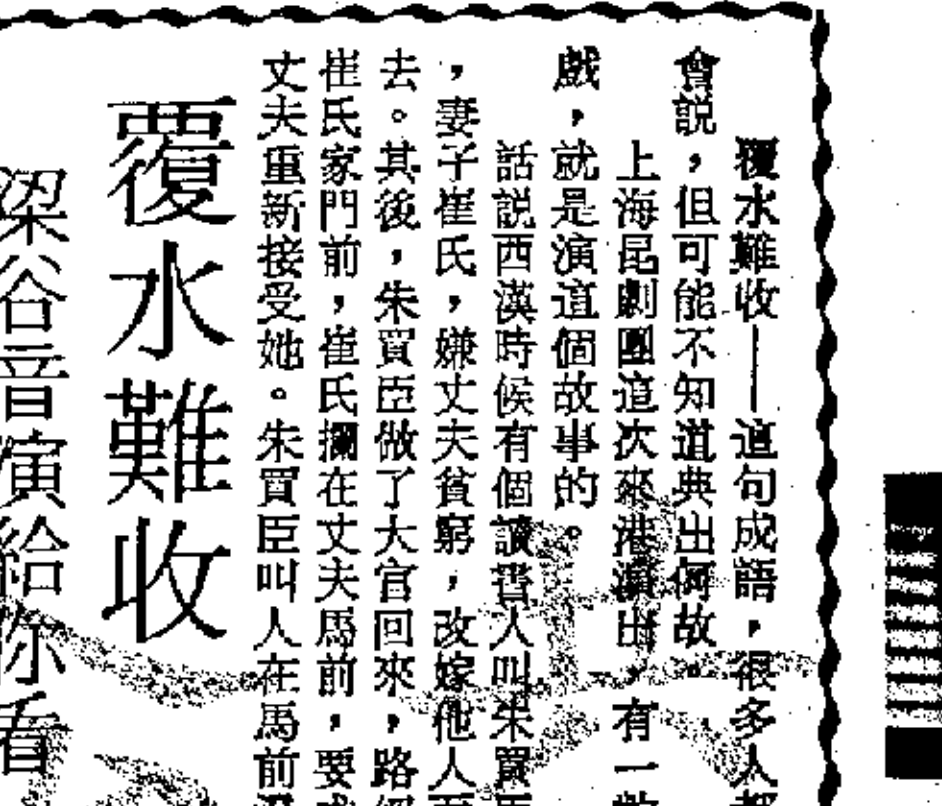 覆水難收——這句成語,很多人都
會説,但可能不知道典出何故。
上海昆劇團這次來港演出,有一齣
戲,就是演這個故事的。
話説西漢時候有個讀書人叫朱買臣
,妻子崔氏,嫌丈夫貧窮,改嫁他人而
去。其後,朱買臣做了大官回來,路經
崔氏家門前,崔氏攔在丈夫馬前,要求
丈夫重新接受她。朱買臣叫人在馬前潑
覆水難收
梁谷音演給你看